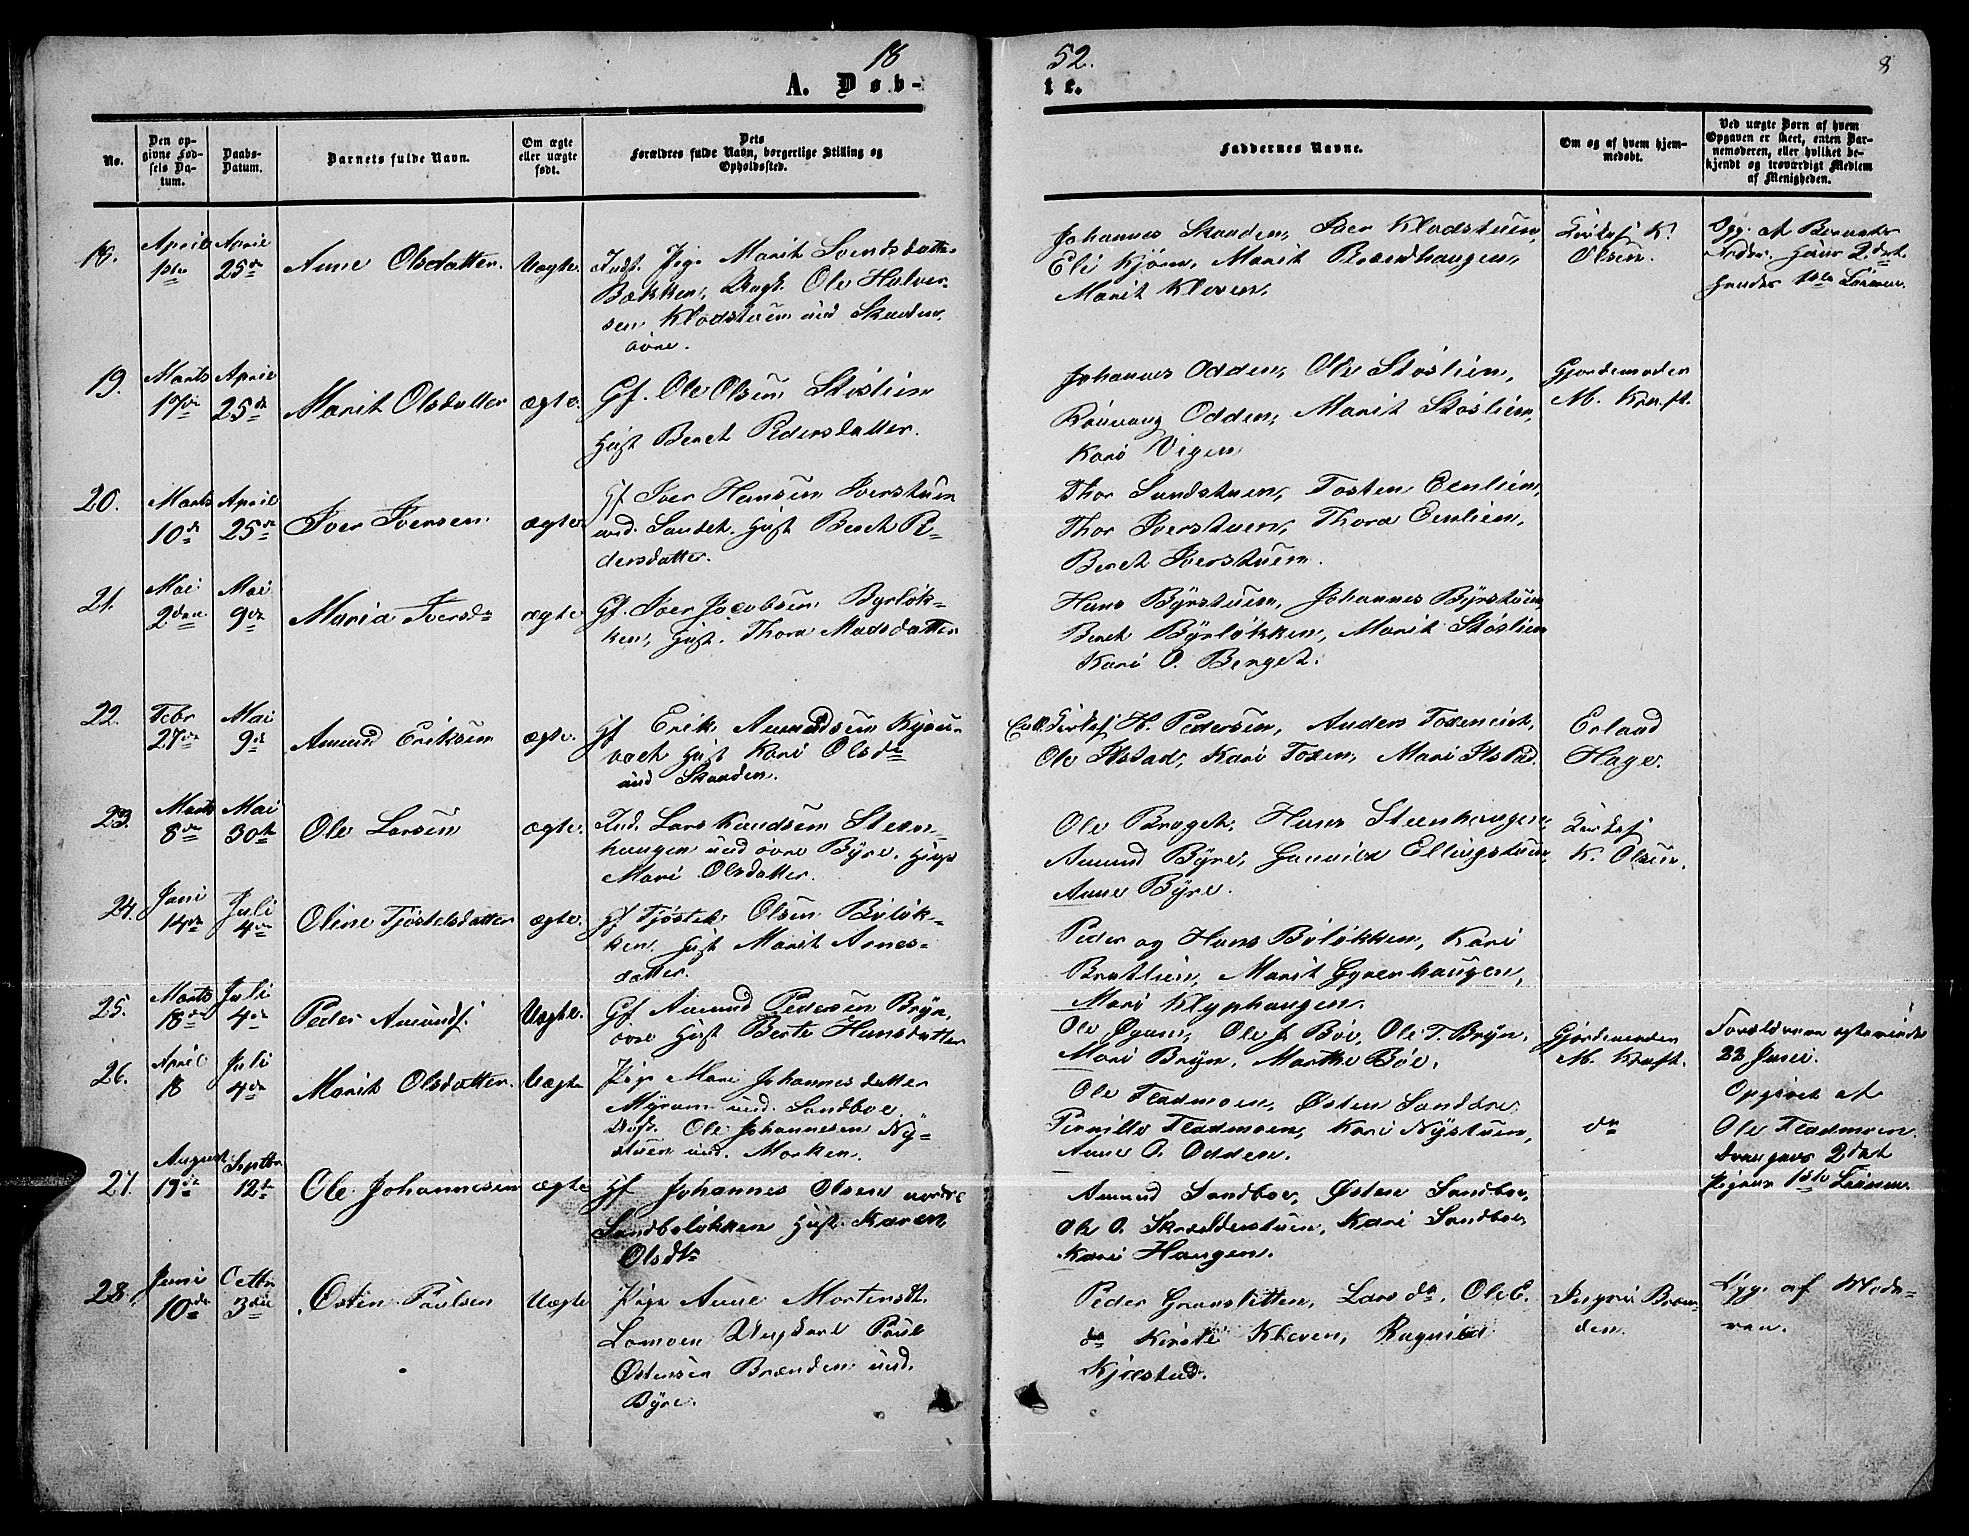 18
52.
8
A. Døb-
te.
No.
Den op-
givne Fød-
sels Da-
tum.
Daabs-
Datum.
Barnets fulde Navn.
Om ægte
eller uægte
født.
Dets
Forældres fulde Navn, borgerlige Stilling og
Opholdssted.
Faddernes Navne.
Om og af hvem hjem-
medøbt.
Ved uægte Børn af hvem
Opgaven er skeet, enten Bar-
nemoderen, eller hvilket be-
kjendt og troværdigt Medlem
af Menigheden.
18.
April
1ste
April
25de
Anne Olsdatter.
Uægte.
Inds. Pige Marit Svendsdatter
Bækken, Ole Halvor-
sen Klodstuen und Skarden
øvre.
Johannes Skarden, Iver Klodstuen,
Eli Kjørn, Marit
Marit Kleven.
Kirkes. K.
Olsen.
Opg. af
2det
1ste
19.
Marts
17de
April
25de
Marit Olsdatter
ægte.
Gf. Ole Olsen Stöslien
Hust Beret Pedersdatter.
Johannes Odden, Ole Stöslien,
Rönnoug Odden, Marit Stöslien,
Kari Vigen
Gjordemoder
M. Kraft.
20.
Marts
10de
April
25de
Iver Iversen.
ægte.
Gf Iver Hansen Iverstuen
und. Sandet, Hust Beret Pe-
dersdatter.
Thor Sandstuen, Tosten Eenlien,
Thor Iverstuen, Thora Eenlien,
Beret Iverstuen.
21.
Mai
2den
Mai
9de
Maria Iversd=
ægte
Gf. Iver Jacobsen Byrløk-
ken, Hust. Thora Madsdatter
Hans Byrstuen, Johannes Byrstuen
Beret Byrløkken, Marit Stöslien
Kari O. Berget.
22.
Febr
27de
Mai
9de
Amund Eriksen
ægte.
Gf Erik Amundsen
Hust Kari Olsdr
und Skarden.
Kirkes H. Pedersen, Anders
Ole Ilstad, Kari Toxen, Mari Ilstad.
Erland
Hage.
23.
Marts
8de
Mai
30te
Ole Larsen
ægte.
Ind. Lars Knudsen Steen-
haugen und øvre Byre. Hust
Mari Olsdatter.
Ole Braget, Hans Steenhaugen,
Amund Byre, Ellingstuen,
Anne Byre.
Kirkes
K. Olsen.
24.
Juni
14de
Juli
4de
Oline Tjöstelsdatter
ægte.
Gf Tjöstel Olsen Böløk-
ken, Hust Marit Arnes-
datter.
Peder og Hans Böløkken, Kari
Bratlien, Marit Gverhaugen,
Mari Klyphaugen.
25.
Marts
18de
Juli
4de
Peder Amunds.
Uægte.
Gf Amund Pedersen Bryn
øvre Hust Berte Hansdatter
Ole Øyum, Ole J Böe, Ole T. Bryn,
Mari Bryn, Marthe Böe.
Gjordemoder
M. Kraft.
Forældrene
22 Juni.
26.
April
18
Juli
4de
Marit Olsdatter.
Uægte
Pige Mari Johannesdatter
Myrum und. Sandboe.
Ole Johannesen Ny-
stuen und. Morken.
Ole Fladmoen, Østen Sandboe,
Pernille Fladmoen, Kari Nystuen,
Anne P. Odden.
do
Opgivet af
Ole Fladmoen.
2det
Pigens 1ste
27.
August
19de
Septbr
12te
Ole Johannesen
ægte
Gf Johannes Olsen nordre
Sandboløkken Hust. Karen
Olsdtr
Amund Sandboe, Østen Sandboe,
Ole O. Kari Sandboe,
Kari Haugen.
28.
Juni
10de
Octbr
3die
Østen Poulsen
Uægte
Pige Anne Mortensdt.
Lomoen Ungkarl Poul
Østensen Brænden und.
Byre.
Peder Grönsletten, Lars do, Ole E.
do Kirsti Kleven, Ragnild
Kjæstad.
Ingrid Bræn-
den.
Opg. af Mode-
ren.